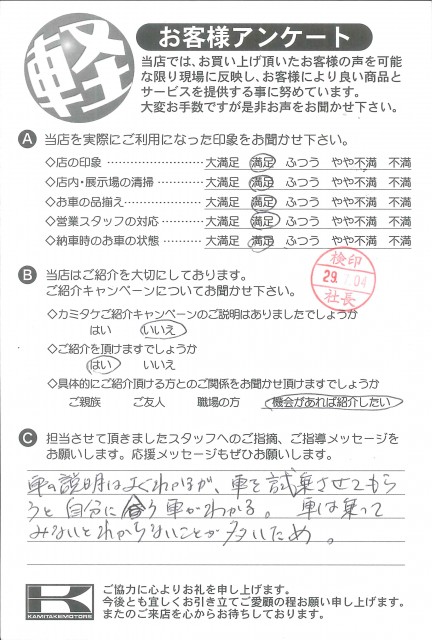 軽
お客様アンケート
当店では、お買い上げ頂いたお客様の声を可能
な限り現場に反映し、お客様により良い商品と
サービスを提供する事に努めています。
大変お手数ですが是非お声をお聞かせ下さい。
A 当店を実際にご利用になった印象をお聞かせ下さい。
◇店の印象 ………………… 大満足 満足 ふつう やや不満 不満
◇店内・展示場の清掃………… 大満足 満足 ふつう やや不満 不満
◇お車の品揃え……………… 大満足 満足 ふつう やや不満 不満
◇営業スタッフの対応 ……… 大満足 満足 ふつう やや不満 不満
◇納車時のお車の状態 ……… 大満足 満足 ふつう やや不満 不満
B 当店はご紹介を大切にしてあります。
ご紹介キャンペーンについてお聞かせ下さい。
検印
29. 7.04
社長
◇カミタケご紹介キャンペーンのご説明はありましたでしょうか
はい いいえ
◇ご紹介を頂けますでしょうか
はい いいえ
◇具体的にご紹介頂ける方とのご関係をお聞かせ頂けますでしょうか
ご親族 ご友人 職場の方 機会があれば紹介したい
C 担当させて頂きましたスタッフへのご指摘、ご指導メッセージを
お願いします。応援メッセージもぜひお願いします。
車の説明はよくわかるが、車を試乗させてもら
うと自分に合う車がわかる。 車は乗って
みないとわからないことが多いため。
K
KAMITAKEMOTORS
ご協力に心よりお礼を申し上げます。
今後とも宜しくお引き立てご愛顧の程お願い申し上げます。
またのご来店を心からお待ちしております。